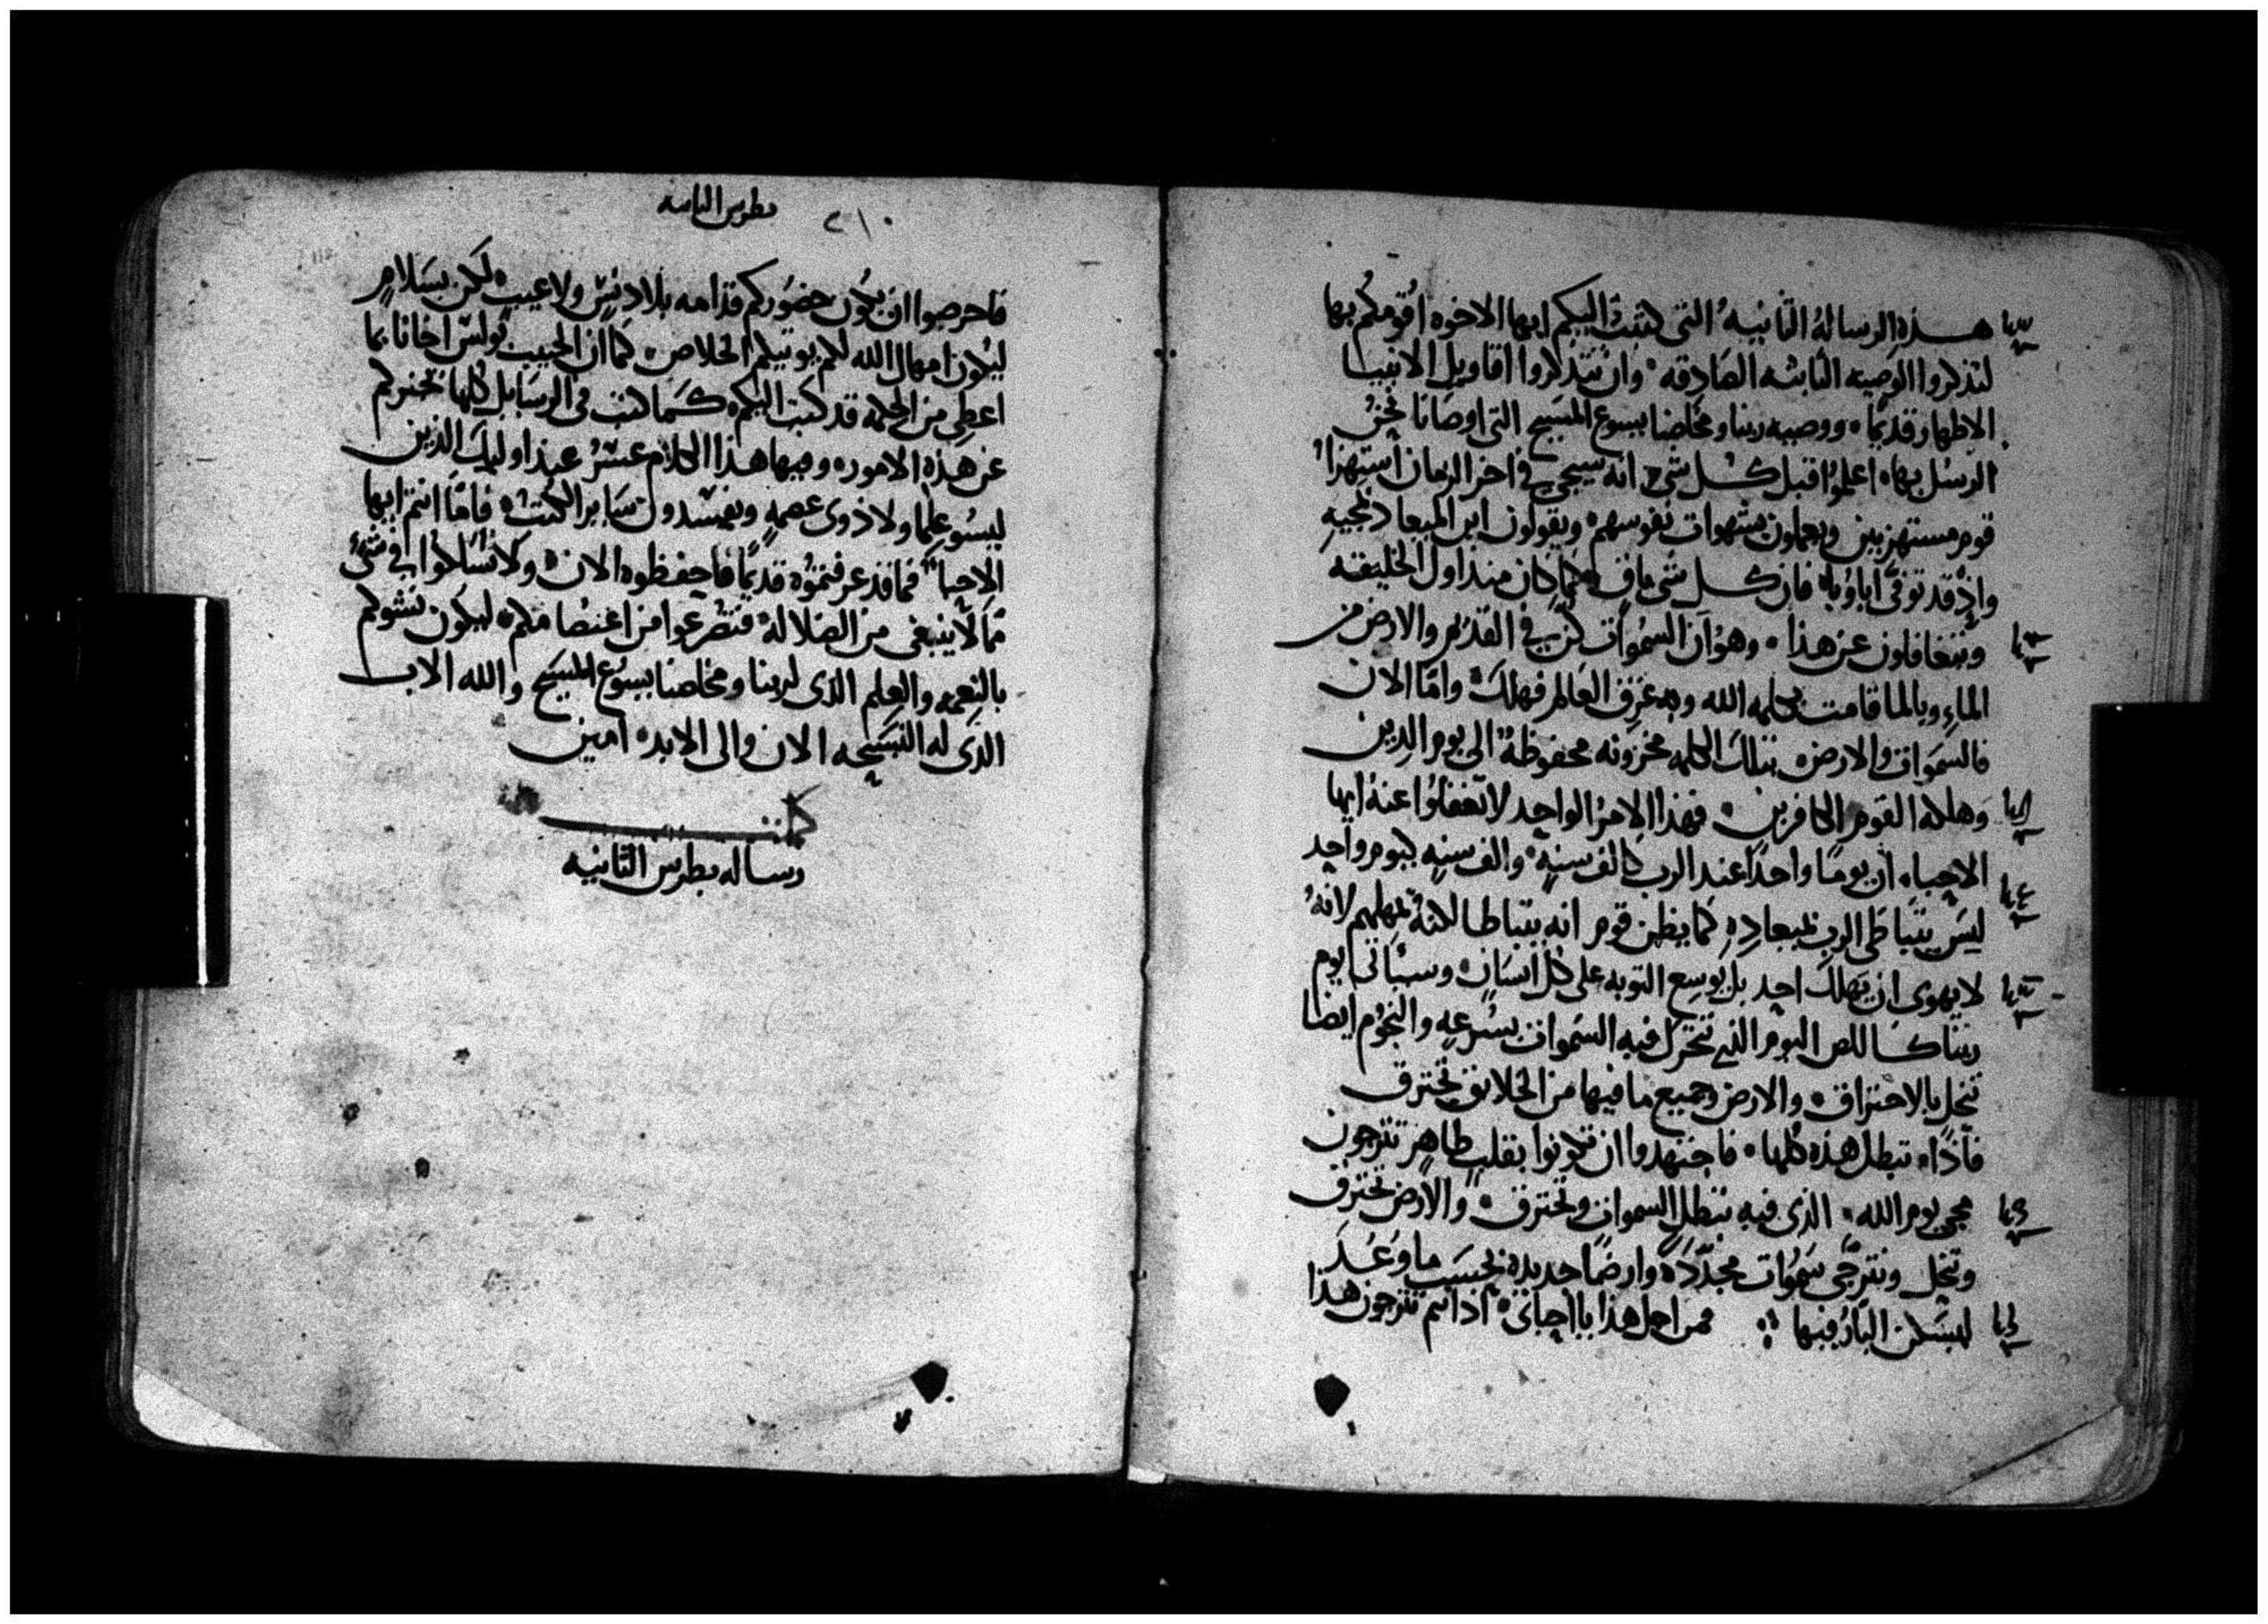 هذه الرسالة الثانية التى كتبت اليكم ايها الاخوه اقومكم بها
لتذكروا الوصيه الثابته الصادقه وان تتذكروا اقاويل الانبيا
الاطهار قديما ووصيه ربنا ومخلصنا يسوع المسيح التى اوصانا نحن
الرسل بها اعلموا قبل كل شى انه سيجى فى اخر الزمان استهزا
قوم مستهزيين ويعملون بشهوات نفوسهم ويقولون اين الميعاد لمجيه
واذ قد توفى اباونا فان كل شى باق كما كان منذ اول الخليقه
ويتغافلون عن هذا وهو ان السموات كن فى القديم والارض من
الماء وبالما قامت بكلمه الله وبه غرق العالم فهلك واما الان
فالسموات والارض بتلك الكلمه مخزونه محفوظة الى يوم الدين
وهلاك القوم الكافرين فهذا الامر الواحد لا تغفلوا عنه ايها
الاحباء ان يوما واحدا عند الرب كالف سنه والف سنه كيوم واحد
ليس يتباطى الرب بميعاده كما يظن قوم انه يتباطا لكنه يمهلهم لانه
لا يهوى ان يهلك احد بل يوسع التوبه على كل انسان وسياتى يوم
ربنا كاللص اليوم الذى تتحرك فيه السموات بسرعه والنجوم ايضا
تنحل بالاحتراق والارض وجميع ما فيها من الخلايق يحترق
فاذا تبطل هذه كلها فاجتهدوا ان تكونوا بقلب طاهر تترجون
مجى يوم الله الذى فيه تبطل السموات وتحترق والارض تحترق
وتنحل ونترجى سموات مجدده وارضا جديده بحسب ما وعد
ليسكن البار فيها فمن اجل هذا يا احباى اذ انتم تترجون هذا
٢١٠ بطرس الثانيه
فاحرصوا ان يكون حضوركم قدامه بلا دنس ولا عيب لكن بسلام
ليكون امهال الله لكم يوتيكم الخلاص كما ان الحبيب بولس اخانا بما
اعطى من الحكمه قد كتب اليكم كما كتب فى الرسايل كلها تخبركم
عن هذه الامور وفيها هذا الكلام عسر عند اوليك الذين
ليسو علما ولا ذوى عصمه ويفسدون ساير الكتب فاما انتم ايها
الاحبا فما قد عرفتموه قديما فاحفظوه الان ولا تسلكوا فى شى
مما لا ينبغى من الضلاله فتضرعوا من اعتصامكم ليكون نشوكم
بالنعمه والعلم الذى لربنا ومخلصنا يسوع المسيح والله الاب
الذى له التسبحه الان والى الابد امين
كملت
رساله بطرس الثانيه